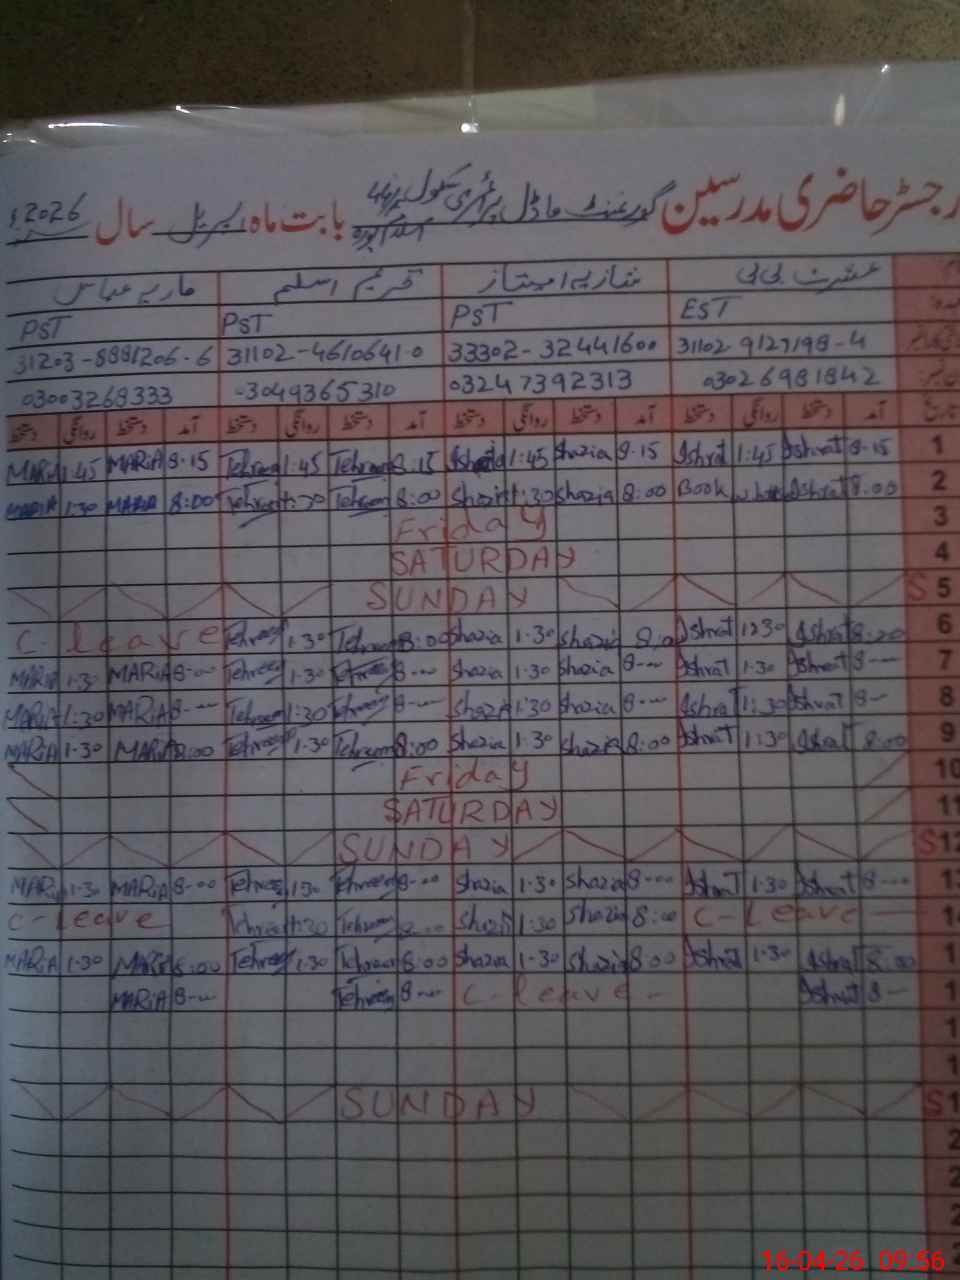 رجسٹر حاضری مدرسین گورنمنٹ ماڈل پرائمری سکول بابت ماہ اپریل سال 2026ء
عشرت بی بی شازیہ امتیاز تحریم اسلم ماریہ عباس
EST PST PST PST
31102 9127198-4 33302-32441600 31102-4610641-0 31203-8881206-6
03026981842 03247392313 03049365310 03003268333
تاریخ آمد دستخط روانگی دستخط آمد دستخط روانگی دستخط آمد دستخط روانگی دستخط آمد دستخط روانگی دستخط
MARIA 1:45 MARIA 8-15 Tehreem 1:45 Tehreem 8:15 1:45 Shazia 8-15 Ishrat 1:45 Ishrat 8-15 1
MARIA 1:30 MARIA 8:00 Tehreem 1:30 Tehreem 8:00 Shazia 1:30 Shazia 8:00 Book Ishrat 8.00 2
Friday 3
SATURDAY 4
SUNDAY S 5
C-leave Tehreem 1:30 Tehreem 8:00 Shazia 1.30 Shazia Ishrat Ishrat 8:20 6
MARIA 1.30 MARIA 8-- Tehreem 1.30 Tehreem 8-- Shazia 1.30 Shazia 8-- Ishrat 1.30 Ishrat 8-- 7
MARIA 1:30 MARIA 8-- Tehreem 1:30 Tehreem 8-- Shazia 1:30 Shazia 8-- Ishrat 1:30 Ishrat 8- 8
MARIA 1-30 MARIA 8:00 Tehreem 1-30 Tehreem 8:00 Shazia 1.30 Shazia 8:00 Ishrat 1:30 Ishrat 8:00 9
Friday 10
SATURDAY 11
SUNDAY S12
MARIA 1-30 MARIA 8-00 Tehreem 1.30 Tehreem 8-00 Shazia 1-30 Shazia 8-- Ishrat 1.30 Ishrat 8-- 13
C-leave Tehreem 1:30 Tehreem Shazia 1:30 Shazia 8:00 C-leave
MARIA 1-30 MARIA 8:00 Tehreem 1.30 Tehreem 8:00 Shazia 1-30 Shazia 8:00 Ishrat 1.30 Ishrat 8:00
MARIA 8-- Tehreem 8-- C-leave - Ishrat 8-
SUNDAY S1
16-04-26 09:56